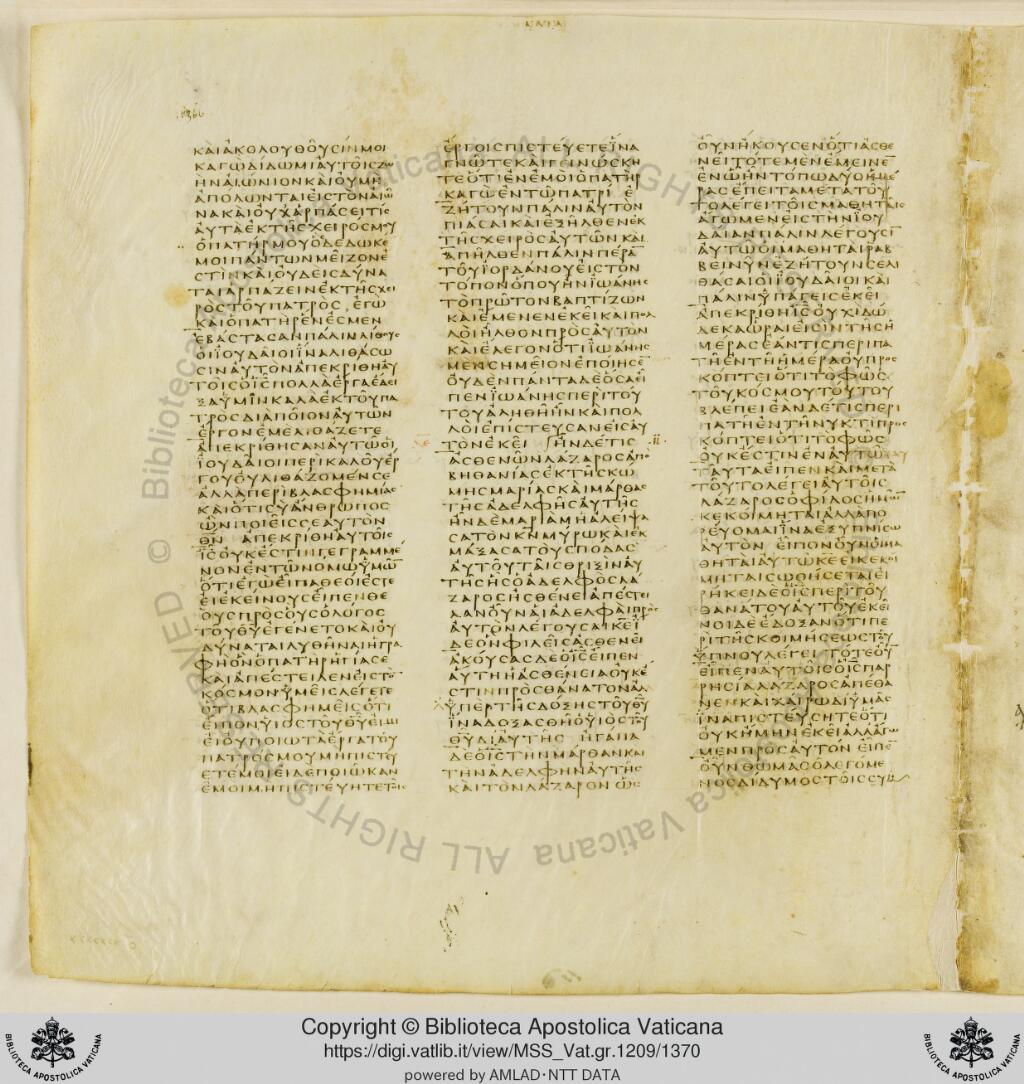 ΚΑΤΑ
ΚΑΙΑΚΟΛΟΥΘΟΥΣΙΝΜΟΙ
ΚΑΓΩΔΙΔΩΜΙΑΥΤΟΙΣΖΩ
ΗΝΑΙΩΝΙΟΝΚΑΙΟΥΜΗ
ΑΠΟΛΩΝΤΑΙΕΙΣΤΟΝΑΙΩ
ΝΑΚΑΙΟΥΧΑΡΠΑΣΕΙΤΙΣ
ΑΥΤΑΕΚΤΗΣΧΕΙΡΟΣΜΟΥ
ΟΠΑΤΗΡΜΟΥΟΔΕΔΩΚΕ
ΜΟΙΠΑΝΤΩΝΜΕΙΖΟΝΕ
ΣΤΙΝΚΑΙΟΥΔΕΙΣΔΥΝΑ
ΤΑΙΑΡΠΑΖΕΙΝΕΚΤΗΣΧΕΙ
ΡΟΣΤΟΥΠΑΤΡΟΣ ΕΓΩ
ΚΑΙΟΠΑΤΗΡΕΝΕΣΜΕΝ
ΕΒΑΣΤΑΣΑΝΠΑΛΙΝΛΙΘΟΥΣ
ΟΙΙΟΥΔΑΙΟΙΙΝΑΛΙΘΑΣΩ
ΣΙΝΑΥΤΟΝΑΠΕΚΡΙΘΗΑΥ
ΤΟΙΣΟΙΣΠΟΛΛΑΕΡΓΑΕΔΕΙ
ΞΑΥΜΙΝΚΑΛΑΕΚΤΟΥΠΑ
ΤΡΟΣΔΙΑΠΟΙΟΝΑΥΤΩΝ
ΕΡΓΟΝΕΜΕΛΙΘΑΖΕΤΕ
ΑΠΕΚΡΙΘΗΣΑΝΑΥΤΩΟΙ
ΙΟΥΔΑΙΟΙΠΕΡΙΚΑΛΟΥΕΡ
ΓΟΥΟΥΛΙΘΑΖΟΜΕΝΣΕ
ΑΛΛΑΠΕΡΙΒΛΑΣΦΗΜΙΑΣ
ΚΑΙΟΤΙΣΥΑΝΘΡΩΠΟΣ
ΩΝΠΟΙΕΙΣΣΕΑΥΤΟΝ
ΘΝ ΑΠΕΚΡΙΘΗΑΥΤΟΙΣ
ΙΣΟΥΚΕΣΤΙΝΓΕΓΡΑΜΜΕ
ΝΟΝΕΝΤΩΝΟΜΩΥΜΩ
ΟΤΙΕΓΩΕΙΠΑΘΕΟΙΕΣΤΕ
ΕΙΕΚΕΙΝΟΥΣΕΙΠΕΝΘΕ
ΟΥΣΠΡΟΣΟΥΣΟΛΟΓΟΣ
ΤΟΥΘΥΕΓΕΝΕΤΟΚΑΙΟΥ
ΔΥΝΑΤΑΙΛΥΘΗΝΑΙΗΓΡΑ
ΦΗΟΝΟΠΑΤΗΡΗΓΙΑΣΕ
ΚΑΙΑΠΕΣΤΕΙΛΕΝΕΙΣΤΟ
ΚΟΣΜΟΝΥΜΕΙΣΛΕΓΕΤΕ
ΟΤΙΒΛΑΣΦΗΜΕΙΣΟΤΙ
ΕΙΠΟΝΥΙΟΣΤΟΥΘΥΕΙΜΙ
ΕΙΟΥΠΟΙΩΤΑΕΡΓΑΤΟΥ
ΠΑΤΡΟΣΜΟΥΜΗΠΙΣΤΕΥ
ΕΤΕΜΟΙΕΙΔΕΠΟΙΩΚΑΝ
ΕΜΟΙΜΗΠΙΣΤΕΥΗΤΕΤΟΙΣ
ΕΡΓΟΙΣΠΙΣΤΕΥΕΤΕΙΝΑ
ΓΝΩΤΕΚΑΙΓΕΙΝΩΣΚΗ
ΤΕΟΤΙΕΝΕΜΟΙΟΠΑΤΗΡ
ΚΑΓΩΕΝΤΩΠΑΤΡΙ Ε
ΖΗΤΟΥΝΠΑΛΙΝΑΥΤΟΝ
ΠΙΑΣΑΙΚΑΙΕΞΗΛΘΕΝΕΚ
ΤΗΣΧΕΙΡΟΣΑΥΤΩΝΚΑΙ
ΑΠΗΛΘΕΝΠΑΛΙΝΠΕΡΑ
ΤΟΥΙΟΡΔΑΝΟΥΕΙΣΤΟΝ
ΤΟΠΟΝΟΠΟΥΗΝΙΩΑΝΗΣ
ΤΟΠΡΩΤΟΝΒΑΠΤΙΖΩΝ
ΚΑΙΕΜΕΝΕΝΕΚΕΙΚΑΙΠΟΛ
ΛΟΙΗΛΘΟΝΠΡΟΣΑΥΤΟΝ
ΚΑΙΕΛΕΓΟΝΟΤΙΙΩΑΝΗΣ
ΜΕΝΣΗΜΕΙΟΝΕΠΟΙΗΣΕ
ΟΥΔΕΝΠΑΝΤΑΔΕΟΣΑΕΙ
ΠΕΝΙΩΑΝΗΣΠΕΡΙΤΟΥ
ΤΟΥΑΛΗΘΗΗΝΚΑΙΠΟΛ
ΛΟΙΕΠΙΣΤΕΥΣΑΝΕΙΣΑΥ
ΤΟΝΕΚΕΙ ΗΝΔΕΤΙΣ
ΑΣΘΕΝΩΝΛΑΖΑΡΟΣΑΠΟ
ΒΗΘΑΝΙΑΣΕΚΤΗΣΚΩ
ΜΗΣΜΑΡΙΑΣΚΑΙΜΑΡΘΑΣ
ΤΗΣΑΔΕΛΦΗΣΑΥΤΗΣ
ΗΝΔΕΜΑΡΙΑΜΗΑΛΕΙΨΑ
ΣΑΤΟΝΚΝΜΥΡΩΚΑΙΕΚ
ΜΑΞΑΣΑΤΟΥΣΠΟΔΑΣ
ΑΥΤΟΥΤΑΙΣΘΡΙΞΙΝΑΥ
ΤΗΣΗΣΟΑΔΕΛΦΟΣΛΑ
ΖΑΡΟΣΗΣΘΕΝΕΙΑΠΕΣΤΕΙ
ΛΑΝΟΥΝΑΙΑΔΕΛΦΑΙΠΡΟΣ
ΑΥΤΟΝΛΕΓΟΥΣΑΙΚΕΙ
ΔΕΟΝΦΙΛΕΙΣΑΣΘΕΝΕΙ
ΑΚΟΥΣΑΣΔΕΟΙΣΕΙΠΕΝ
ΑΥΤΗΗΑΣΘΕΝΕΙΑΟΥΚΕ
ΣΤΙΝΠΡΟΣΘΑΝΑΤΟΝΑΛ
ΥΠΕΡΤΗΣΔΟΞΗΣΤΟΥΘΥ
ΙΝΑΔΟΞΑΣΘΗΟΥΙΟΣΤΟΥ
ΘΥΔΙΑΥΤΗΣ ΗΓΑΠΑ
ΔΕΟΙΣΤΗΝΜΑΡΘΑΝΚΑΙ
ΤΗΝΑΔΕΛΦΗΝΑΥΤΗΣ
ΚΑΙΤΟΝΛΑΖΑΡΟΝ ΩΣ
ΟΥΝΗΚΟΥΣΕΝΟΤΙΑΣΘΕ
ΝΕΙΤΟΤΕΜΕΝΕΜΕΙΝΕ
ΕΝΩΗΝΤΟΠΩΔΥΟΗΜΕ
ΡΑΣΕΠΕΙΤΑΜΕΤΑΤΟΥ
ΤΟΛΕΓΕΙΤΟΙΣΜΑΘΗΤΑΙΣ
ΑΓΩΜΕΝΕΙΣΤΗΝΙΟΥ
ΔΑΙΑΝΠΑΛΙΝΛΕΓΟΥΣΙ
ΑΥΤΩΟΙΜΑΘΗΤΑΙΡΑΒ
ΒΕΙΝΥΝΕΖΗΤΟΥΝΣΕΛΙ
ΘΑΣΑΙΟΙΙΟΥΔΑΙΟΙΚΑΙ
ΠΑΛΙΝΥΠΑΓΕΙΣΕΚΕΙ
ΑΠΕΚΡΙΘΗΙΣΟΥΧΙΔΩ
ΔΕΚΑΩΡΑΙΕΙΣΙΝΤΗΣΗ
ΜΕΡΑΣΕΑΝΤΙΣΠΕΡΙΠΑ
ΤΗΕΝΤΗΗΜΕΡΑΟΥΠΡΟΣ
ΚΟΠΤΕΙΟΤΙΤΟΦΩΣ
ΤΟΥΚΟΣΜΟΥΤΟΥΤΟΥ
ΒΛΕΠΕΙΕΑΝΔΕΤΙΣΠΕΡΙ
ΠΑΤΗΕΝΤΗΝΥΚΤΙΠΡΟΣ
ΚΟΠΤΕΙΟΤΙΤΟΦΩΣ
ΟΥΚΕΣΤΙΝΕΝΑΥΤΩ
ΤΑΥΤΑΕΙΠΕΝΚΑΙΜΕΤΑ
ΤΟΥΤΟΛΕΓΕΙΑΥΤΟΙΣ
ΛΑΖΑΡΟΣΟΦΙΛΟΣΗΜΩ
ΚΕΚΟΙΜΗΤΑΙΑΛΛΑΠΟ
ΡΕΥΟΜΑΙΙΝΑΕΞΥΠΝΙΣΩ
ΑΥΤΟΝ ΕΙΠΟΝΟΥΝΟΙΜΑ
ΘΗΤΑΙΑΥΤΩΚΕΕΙΚΕΚΟΙ
ΜΗΤΑΙΣΩΘΗΣΕΤΑΙΕΙ
ΡΗΚΕΙΔΕΟΙΣΠΕΡΙΤΟΥ
ΘΑΝΑΤΟΥΑΥΤΟΥΕΚΕΙ
ΝΟΙΔΕΕΔΟΞΑΝΟΤΙΠΕ
ΡΙΤΗΣΚΟΙΜΗΣΕΩΣΤΟΥ
ΥΠΝΟΥΛΕΓΕΙΤΟΤΕΟΥ
ΕΙΠΕΝΑΥΤΟΙΣΟΙΣΠΑΡ
ΡΗΣΙΑΛΑΖΑΡΟΣΑΠΕΘΑ
ΝΕΝΚΑΙΧΑΙΡΩΔΙΥΜΑΣ
ΙΝΑΠΙΣΤΕΥΣΗΤΕΟΤΙ
ΟΥΚΗΜΗΝΕΚΕΙΑΛΛΑΑΓΩ
ΜΕΝΠΡΟΣΑΥΤΟΝ ΕΙΠΕ
ΟΥΝΘΩΜΑΣΟΛΕΓΟΜΕ
ΝΟΣΔΙΔΥΜΟΣΤΟΙΣΣΥΜ
© Biblioteca Apostolica Vaticana ALL RIGHTS RESERVED
Copyright © Biblioteca Apostolica Vaticana
https://digi.vatlib.it/view/MSS_Vat.gr.1209/1370
powered by AMLAD·NTT DATA
BIBLIOTECA APOSTOLICA VATICANA
BIBLIOTECA APOSTOLICA VATICANA